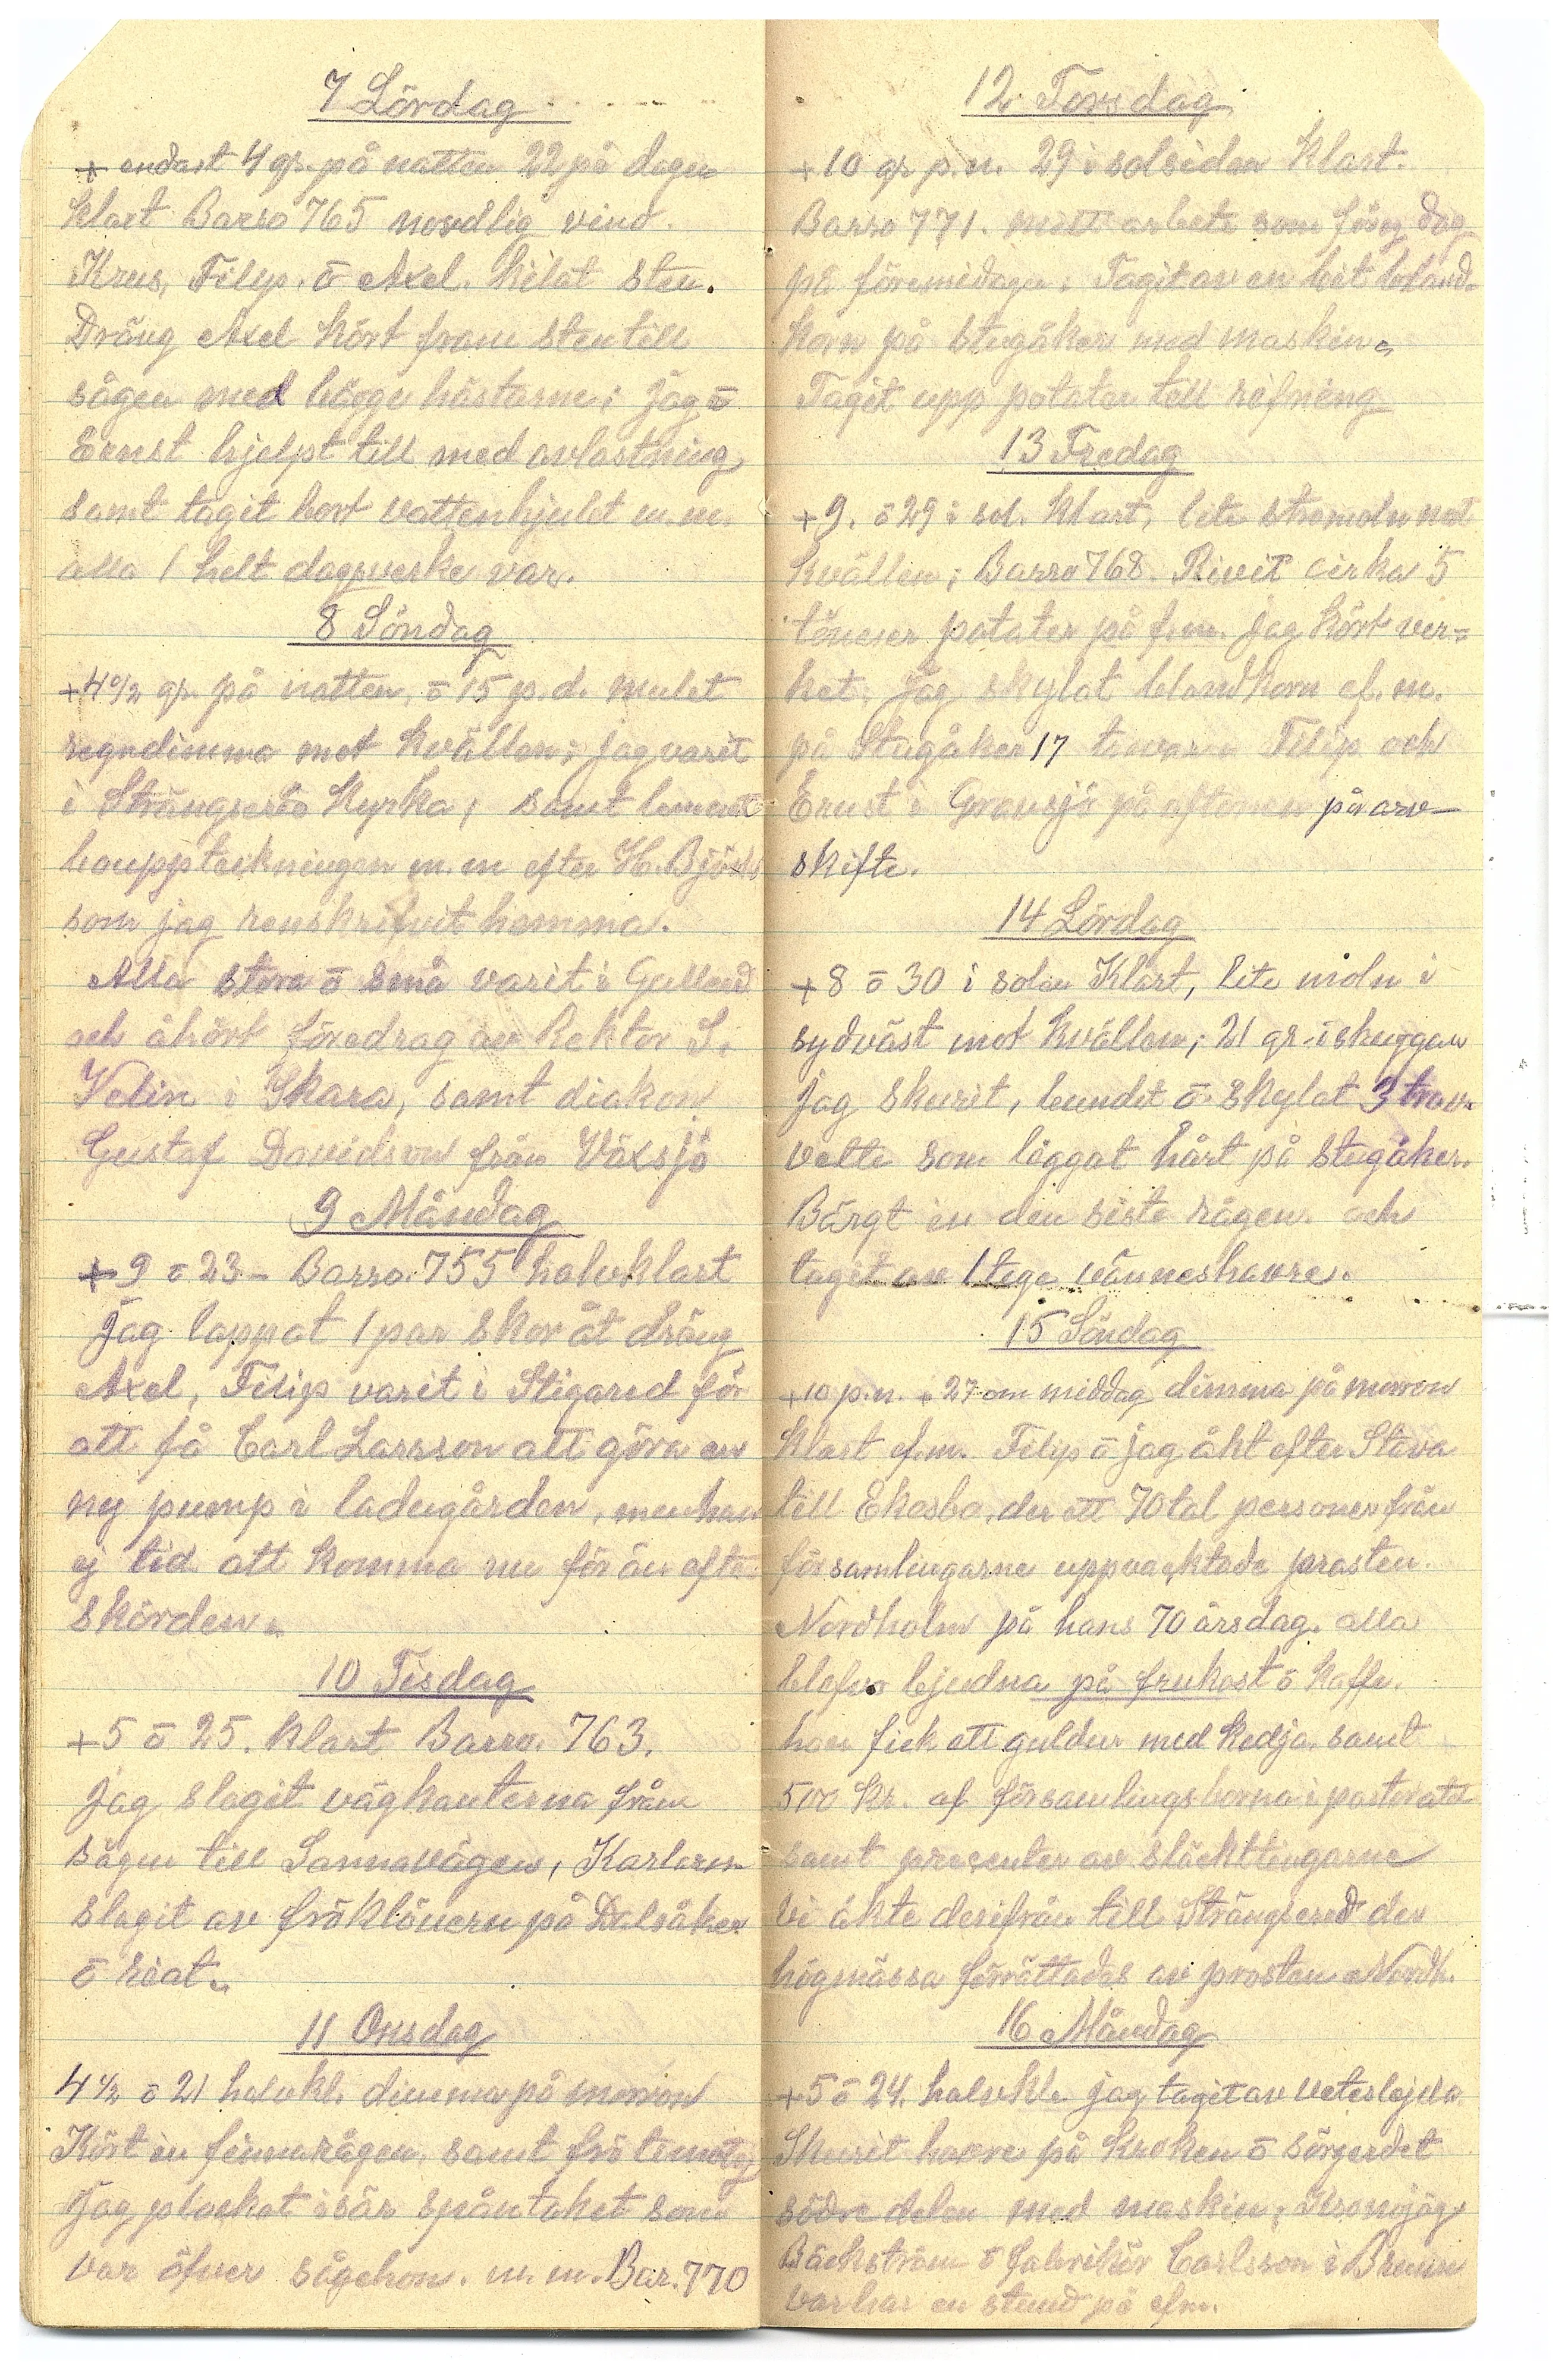 7 Lördag
+ endast 4 gr. på natten 22 på dagen
klart Barro 765 nordlig vind.
Krus, Filip. ō Axel. kilat sten.
Dräng Axel kört fram sten till
sågen med bägge hästarne; jag ō
Ernst hjelpt till med avlastning
samt tagit bort vattenhjulet m.m.
alla 1 helt dagsverke var.
8 Söndag
+4 1/2 gr. på natten, ō 15 p.d. mulet
regndimma mot kvällen; jag varit
i Strängsereds Kyrka, samt lemnat
bouppteckningen m.m efter H. Björks
som jag renskrifvit hemma.
Alla stora ō små varit i Gullered
och åhört föredrag av Rektor S.
Velin i Skara, samt diakon
Gustaf Davidson från Växsjö
9 Måndag
+9 ō 23 - Barro. 755 halvklart
Jag lappat 1 par skor åt dräng
Axel, Filip varit i Stigared för
att få Carl Larsson att göra en
ny pump i ladugården, men han
ej tid att komma nu för än efter
skörden.
10 Tisdag
+5 ō 25. klart Barro. 763.
Jag slagit vägkanterna från
sågen till Sannavägen, Karlarne
slagit av fröklövern på Dalsåker
ō riat.
11 Onsdag
4 1/2 ō 21 halvkl. dimma på morron
Kört in finnrågen, samt frö timotej
Jag plockat isär spåntaket som
var öfver sågehon. m.m. Bar. 770
12 Torsdag
+10 gr p.n. 29 i solsidan Klart.
Barro 771. mitt arbete som föreg dag
på förmidagen; Tagit av en bit bland-
korn på stugåker med maskin.
Tagit upp potater till rifning
13 Fredag
+9. ō 29 i sol. Klart, lite strömoln mot
kvällen; Barro 768. Rivit cirka 5
tönnor potater på f.m. jag kört ver-
ket, jag skylat blandkorn ef.m.
på Stugåker 17 travar. Filip och
Ernst i Gransjö på aftonen på arv-
skifte.
14 Lördag
+8 ō 30 i solen Klart, lite moln i
sydväst mot kvällen; 21 gr. i skuggan
jag skurit, bundet ō. skylat 3 trav.
vette som läggat hårt på stugåker.
Bärgt in den siste rågen och
taget av 1 tege vänneshavre.
15 Söndag
+10 p.n. + 27 om middag dimma på morron
klart ef.m. Filip ō jag åkt efter Stäva
till Ekasbo, der ett 70tal personer från
församlingarne uppvacktade prosten
Nordholm på hans 70 årsdag. alla
blefvo bjudna på frukost ō kaffe.
han fick ett guldur med kedja, samt
500 Kr. af församlingsborna i pastoratet
samt presenter av släcktingarne
vi åkte derifrån till Strängsered der
högmässa förrättades av prosten Nordh.
16 Måndag
+5 ō 24. halvkl. jag tagit av
Skurit havre på Kroken ō sörgerdet
södre delen med maskin; Kronojäg.
Bäckström ō fabrikör Carlsson i
var har en stund på efm.